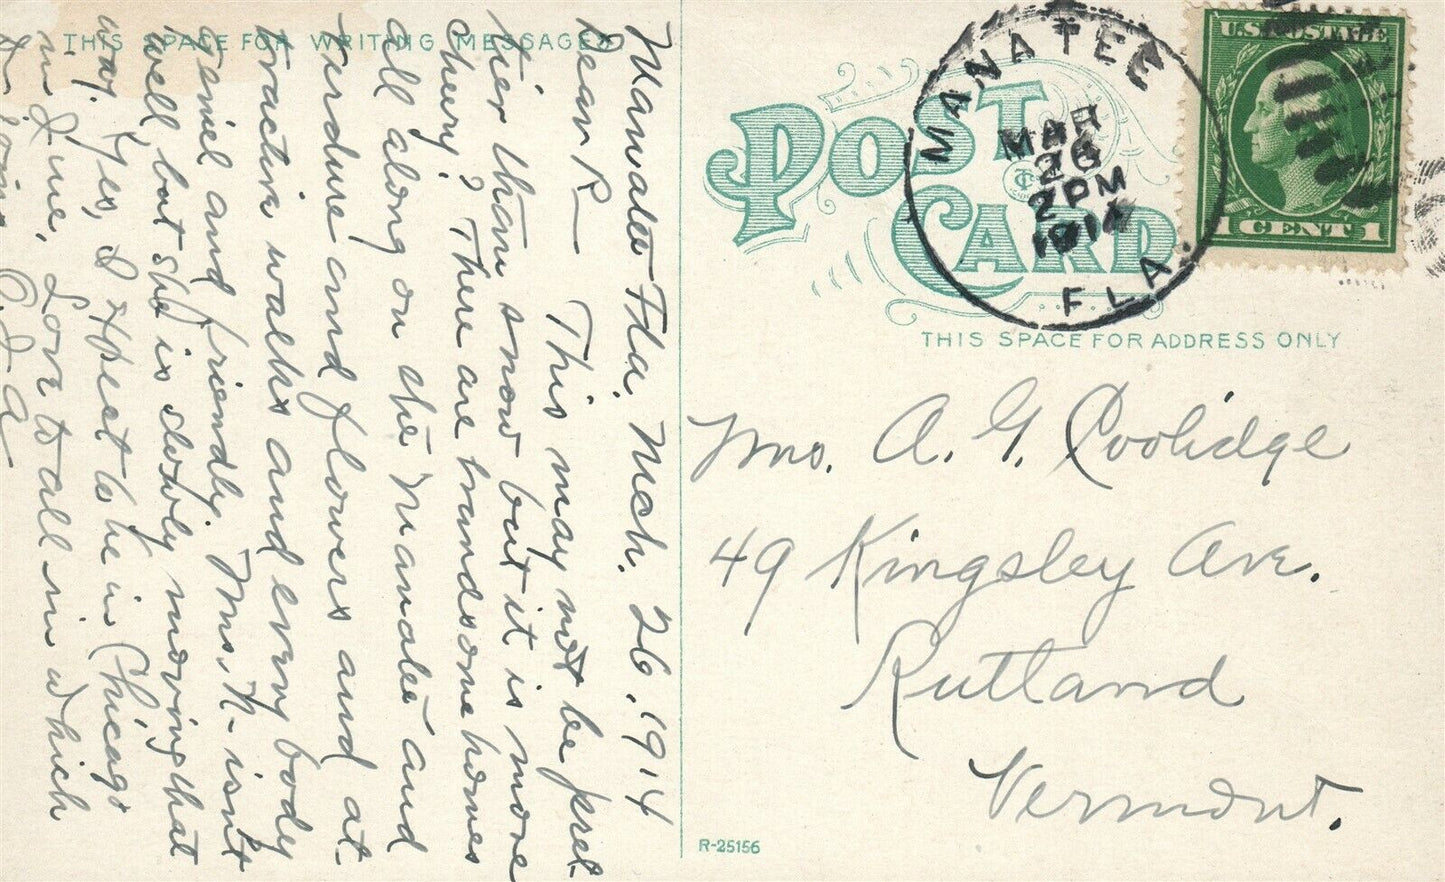 THIS SPACE FOR WRITING MESSAGES
Manatee Fla. Mch. 26, 1914
Dear R— This may not be pret-
tier than snow but it is more
cheery? There are handsome homes
all along on the Manatee and
verdure and flowers and at-
tractive walks and every body
genial and friendly. Mrs. K- isn't
well, but she is slowly moving that
way. Yes, I expect to be in Chicago
in June, Love to all in which
joins
POST
CARD
MANATEE
FLA.
MAR
26
2 PM
1914
U.S. POSTAGE
1 CENT 1
THIS SPACE FOR ADDRESS ONLY
Mrs. A. G. Coolidge
49 Kingsley Ave.
Rutland
Vermont.
R-25156